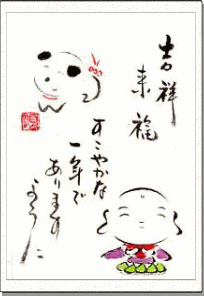 吉祥
来福
すこやかな
一年で
あります
ように